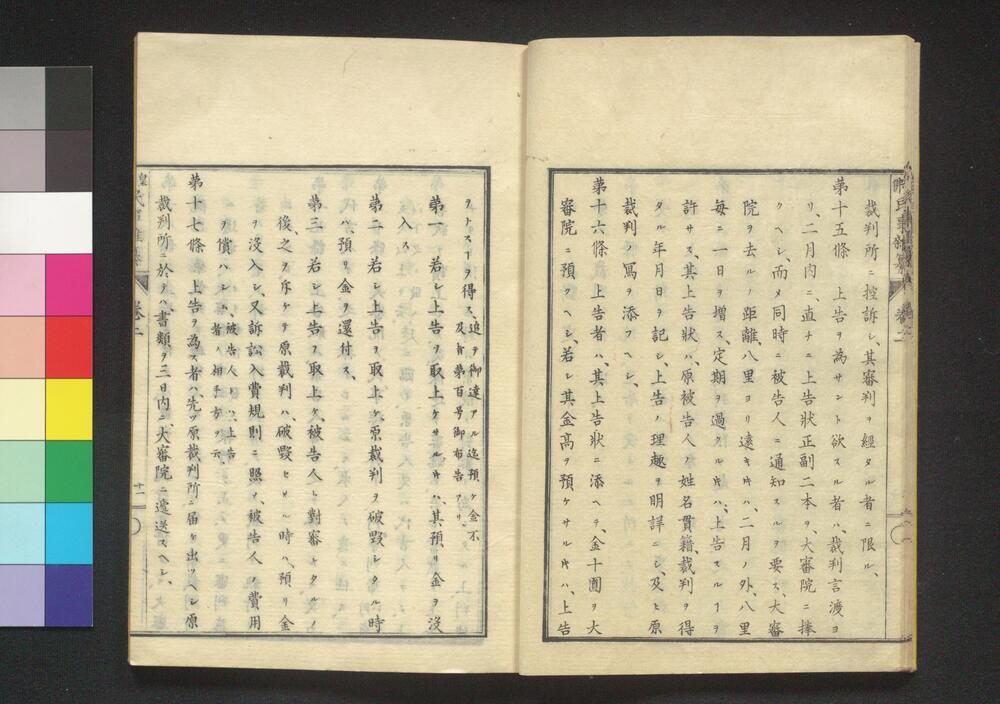 裁判所ニ控訴シ、其審判ヲ經タル者ニ限ル、
第十五條 上告ヲ為サント欲スル者ハ、裁判言渡ヨ
リ、二月内ニ、直チニ上告狀正副二本ヲ、大審院ニ捧
クヘシ、而メ同時ニ被告人ニ通知スルヲ要ス、大審
院ヲ去ルノ距離八里ヨリ遠キキハ、二月ノ外、八里
每ニ一日ヲ増ス、定期ヲ過クルキハ、上告スルヿヲ
許サス、其上告狀ハ、原被告人ノ姓名貫籍、裁判ヲ得
タル年月日ヲ記シ、上告ノ理趣ヲ明詳ニシ、及ヒ原
裁判ノ寫ヲ添フヘシ、
第十六條 上告者ハ、其上告狀ニ添ヘテ、金十圓ヲ大
審院ニ預クヘシ、若シ其金高ヲ預ケサルキハ、上告
ヲトスヿヲ得ス、追テ御達アル迄預ケ金不
及旨第百号御布告アリ、
第一 若シ上告ヲ取上ケサルキハ、其預リ金ヲ沒
入ス、
第二 若シ上告ヲ取上ケ、原裁判ヲ破毀シタル時
ハ、預リ金ヲ還付ス、
第三 若シ上告ヲ取上ケ、被告人ト對審セタルノ
後、之ヲ斥ケテ原裁判ハ、破毀セサル時ハ、預リ金
ヲ沒入シ、又訴訟入費規則ニ照シ、被告人ノ費用
ヲ償ハシム、被告人トハ、上告
者ノ相手方ヲ云
第十七條 上告ヲ為ス者ハ、先ツ原裁判所ニ届ケ出ツヘシ原
裁判所ニ於テハ、書類ヲ三日内ニ、大審院ニ遞送スヘシ、
卷二
十一